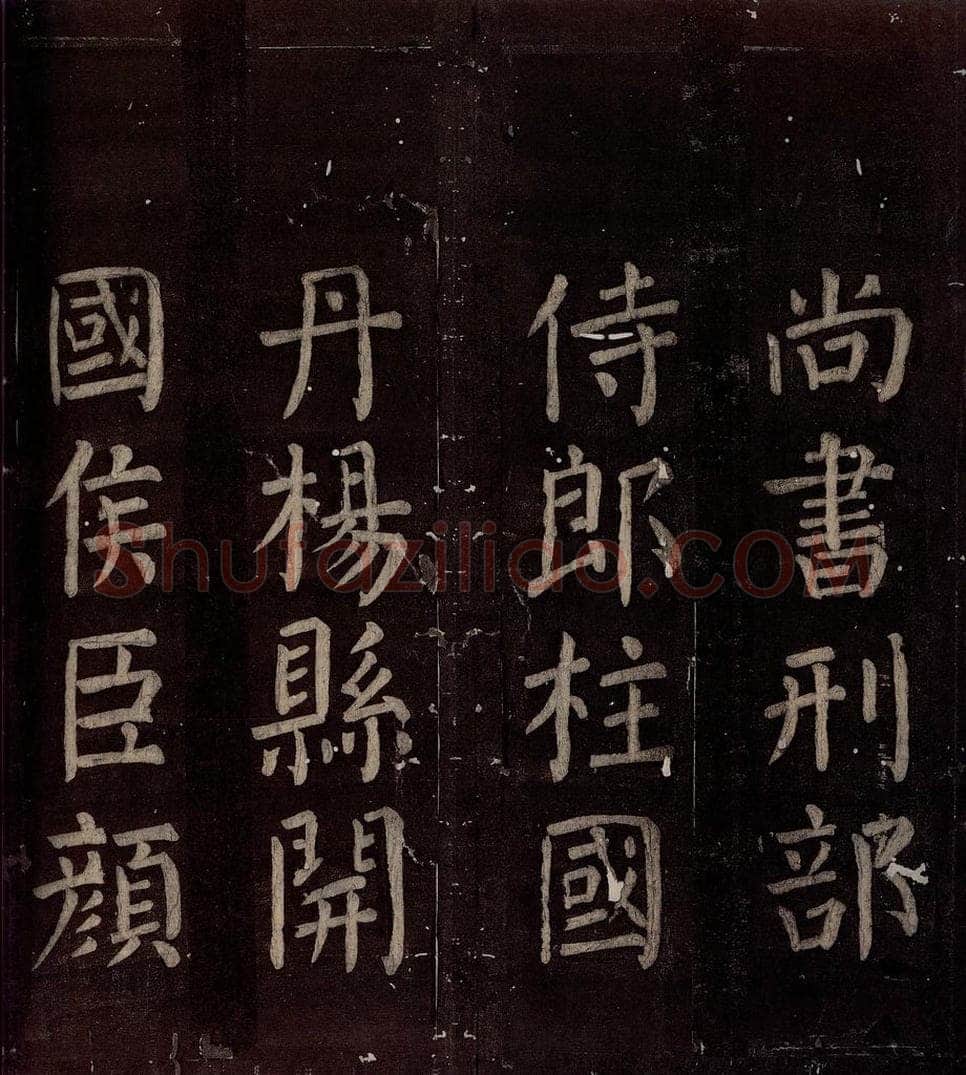 尚書刑部
侍郎柱國
丹楊縣開
國侯臣顔
Shufaziliao.COM